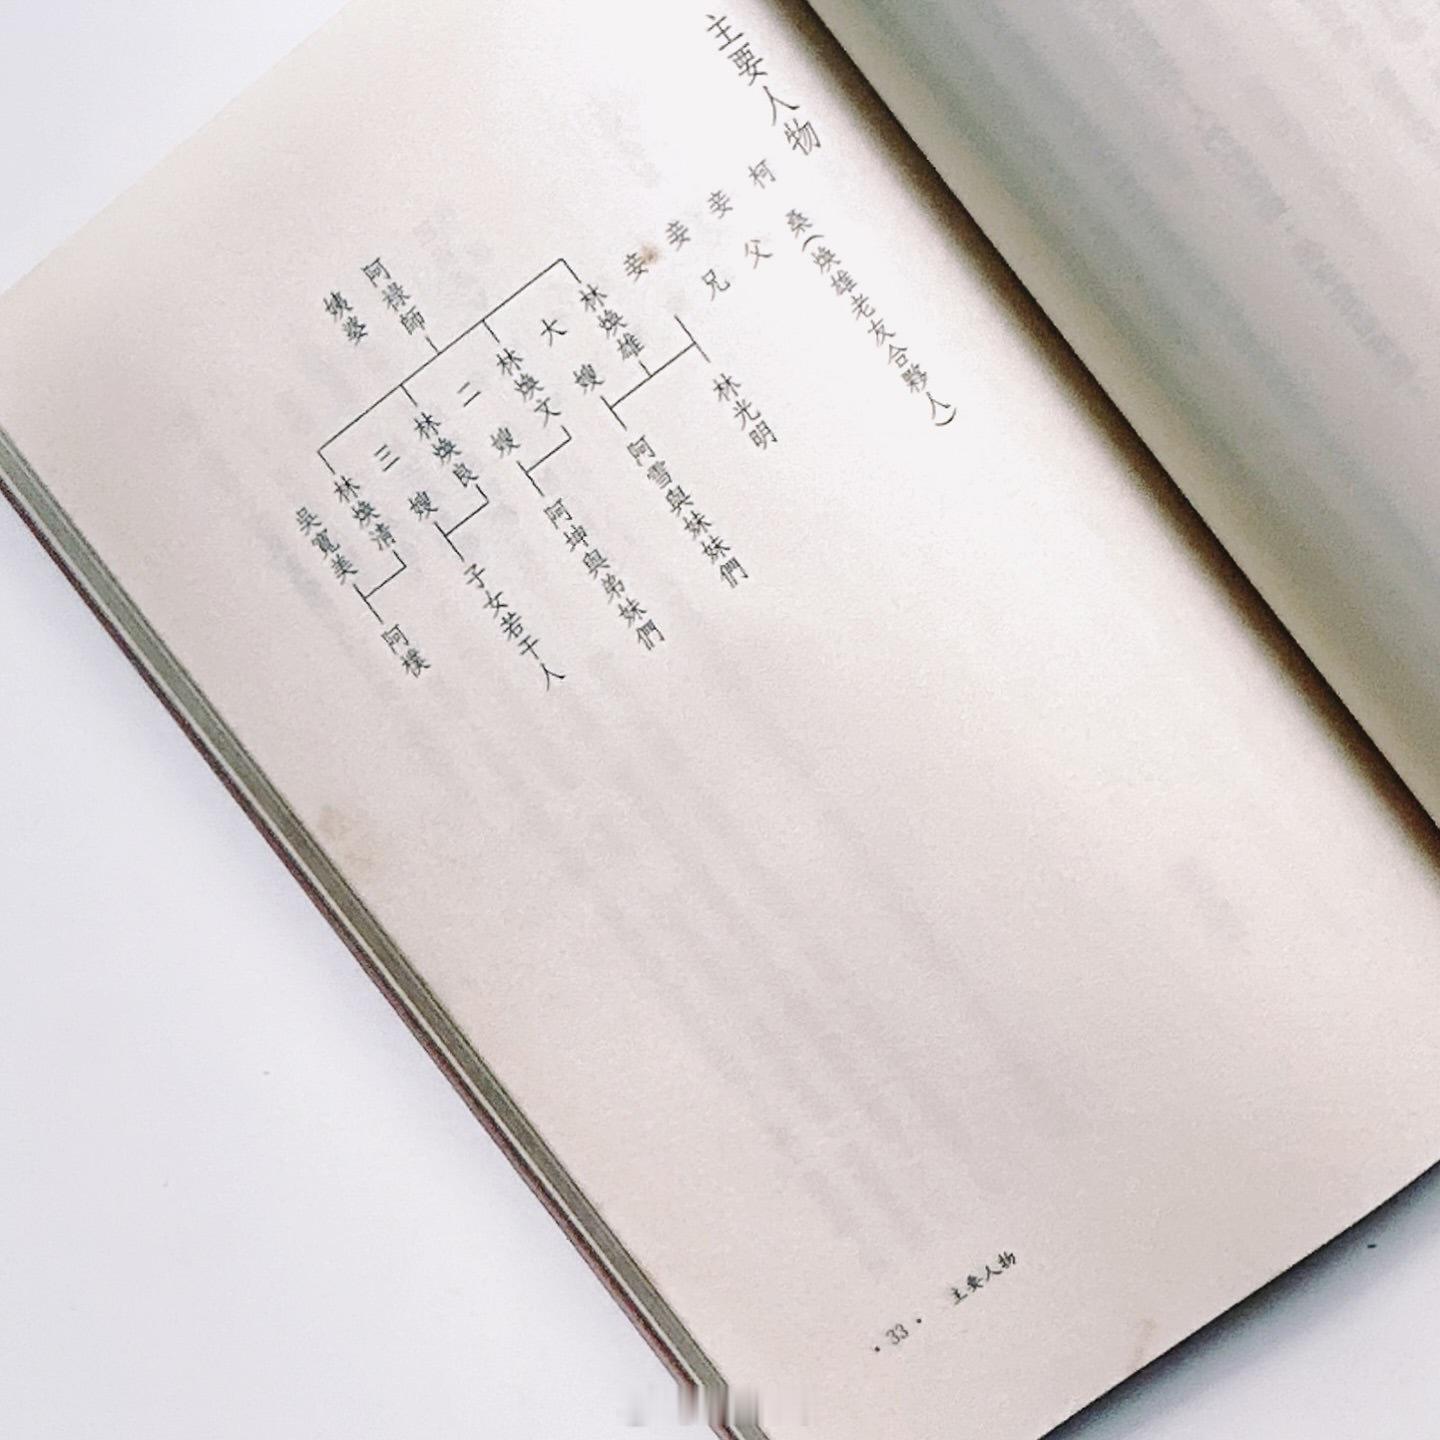 主要人物
柯桑(煥雄老友合夥人)
妾父
妾兄
妾
林光明
林煥雄
大嫂
阿雪與妹妹們
林煥文
二嫂
阿坤與弟妹們
阿祿師
姨婆
林煥良
三嫂
子女若干人
林煥清
吳寬美
阿樸
主要人物
·33·